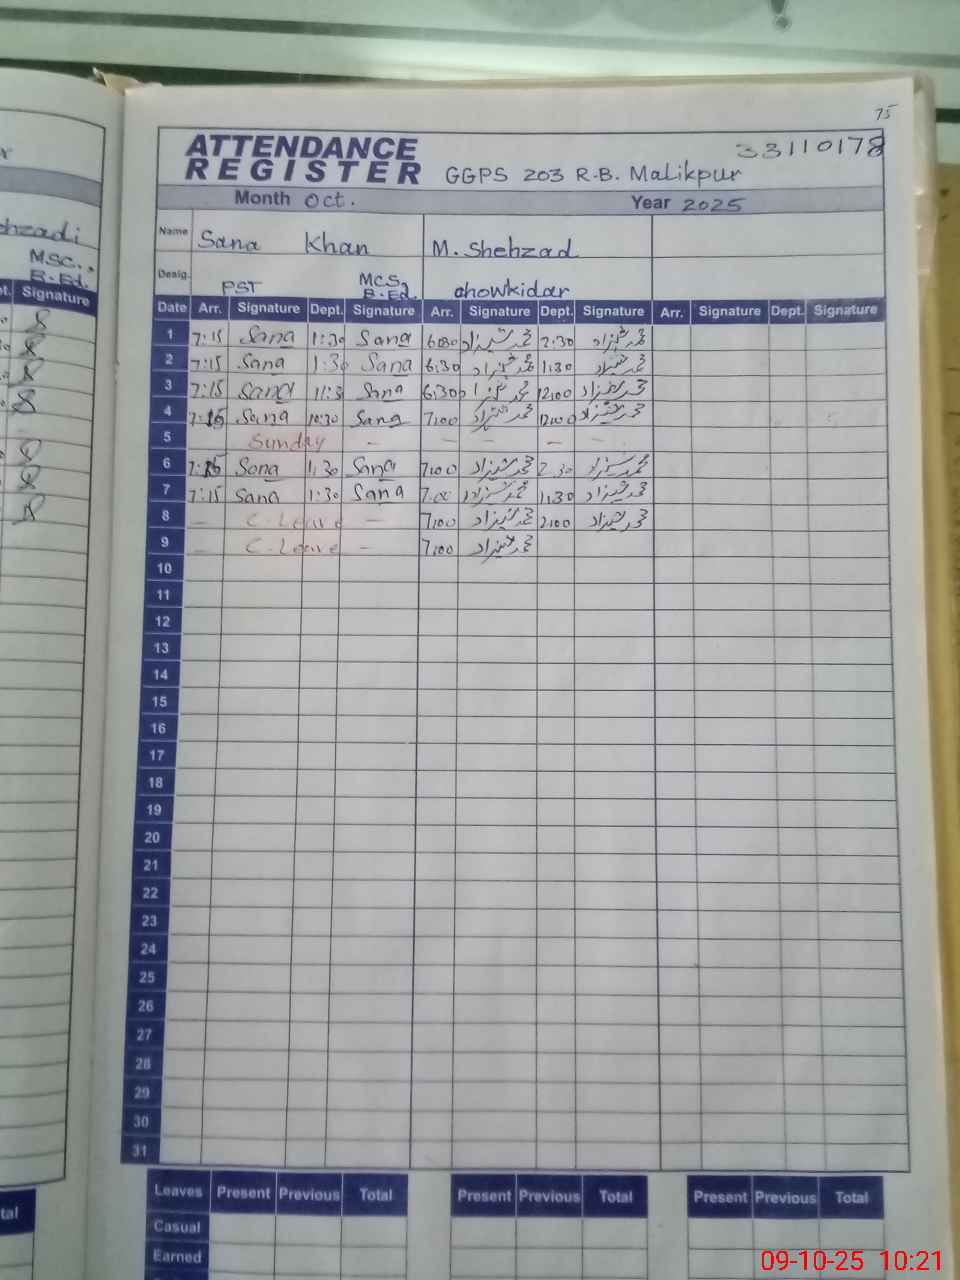 75
ATTENDANCE
REGISTER
33110178
GGPS 203 R.B. Malikpur
Month Oct. Year 2025
Name Sana Khan M. Shehzad
Desig. PST MCS, B.Ed. chowkidar
Date Arr. Signature Dept. Signature Arr. Signature Dept. Signature Arr. Signature Dept. Signature
1 7:15 Sana 1:30 Sana 6:30 محمد شہزاد 2:30 محمد شہزاد
2 7:15 Sana 1:30 Sana 6:30 محمد شہزاد 1:30 محمد شہزاد
3 7:15 Sana 11:3 Sana 6:30 محمد شہزاد 12:00 محمد شہزاد
4 7:15 Sana Sana 7:00 محمد شہزاد 12:00 محمد شہزاد
5 Sunday – – – – –
6 7:15 Sana 1:30 Sana 7:00 محمد شہزاد 2:30 محمد شہزاد
7 7:15 Sana 1:30 Sana 7:00 محمد شہزاد 1:30 محمد شہزاد
8 – C-Leave – 7:00 محمد شہزاد 2:00 محمد شہزاد
9 – C-Leave – 7:00 محمد شہزاد
10
11
12
13
14
15
16
17
18
19
20
21
22
23
24
25
26
27
28
29
30
31
Leaves Present Previous Total Present Previous Total Present Previous Total
Casual
Earned
hzadi
MSC.,
B.Ed.
Signature
tal
09-10-25 10:21